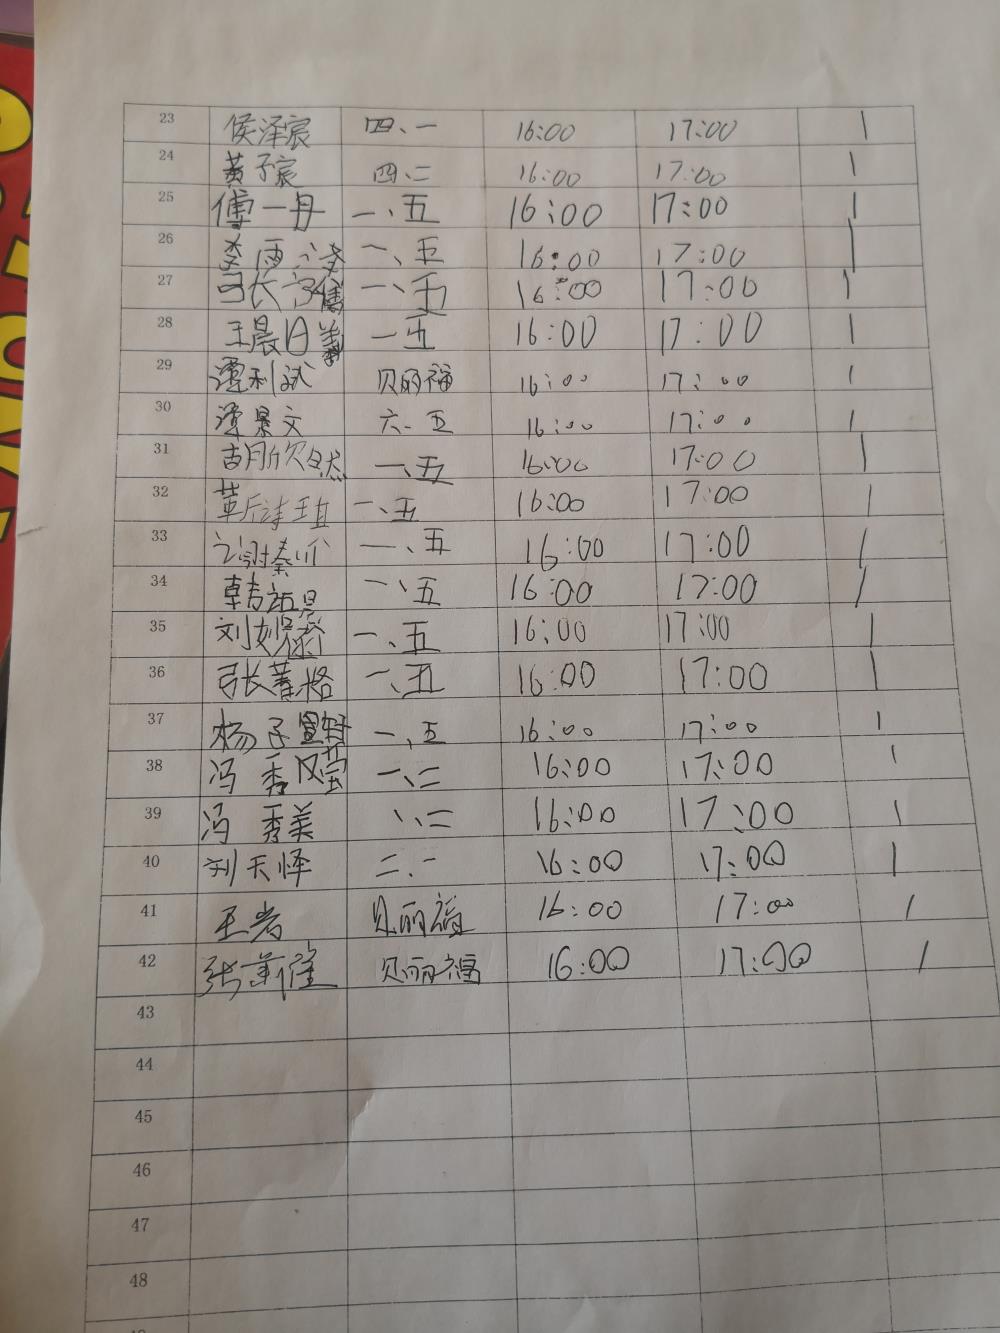 23 侯泽宸 四、一 16:00 17:00 1
24 黄子宸 四、二 16:00 17:00 1
25 傅一丹 一、五 16:00 17:00 1
26 李雨 一、五 16:00 17:00 1
27 张 一、五 16:00 17:00 1
28 王晨 一五 16:00 17:00 1
29 谭利斌 贝丽福 16:00 17:00 1
30 谭景文 六、五 16:00 17:00 1
31 胡欣然 一、五 16:00 17:00 1
32 一、五 16:00 17:00 1
33 谢 一、五 16:00 17:00 1
34 韩 一、五 16:00 17:00 1
35 刘 一、五 16:00 17:00 1
36 张 格 一、五 16:00 17:00 1
37 杨子 一、五 16:00 17:00 1
38 冯秀 一、二 16:00 17:00 1
39 冯秀美 一、二 16:00 17:00 1
40 刘天怿 二、一 16:00 17:00 1
41 王岩 贝丽福 16:00 17:00 1
42 张 贝丽福 16:00 17:00 1
43
44
45
46
47
48